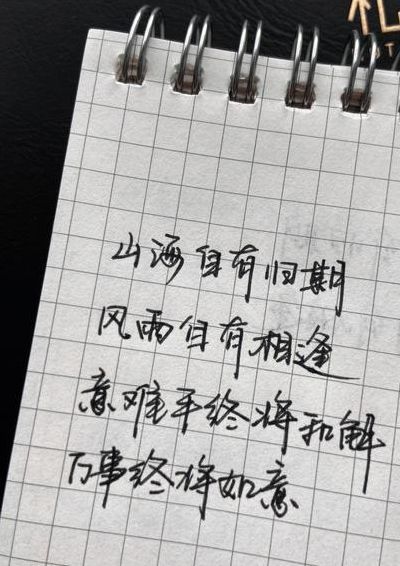 山海自有归期
风雨自有相逢
意难平终将和解
万事终将如意